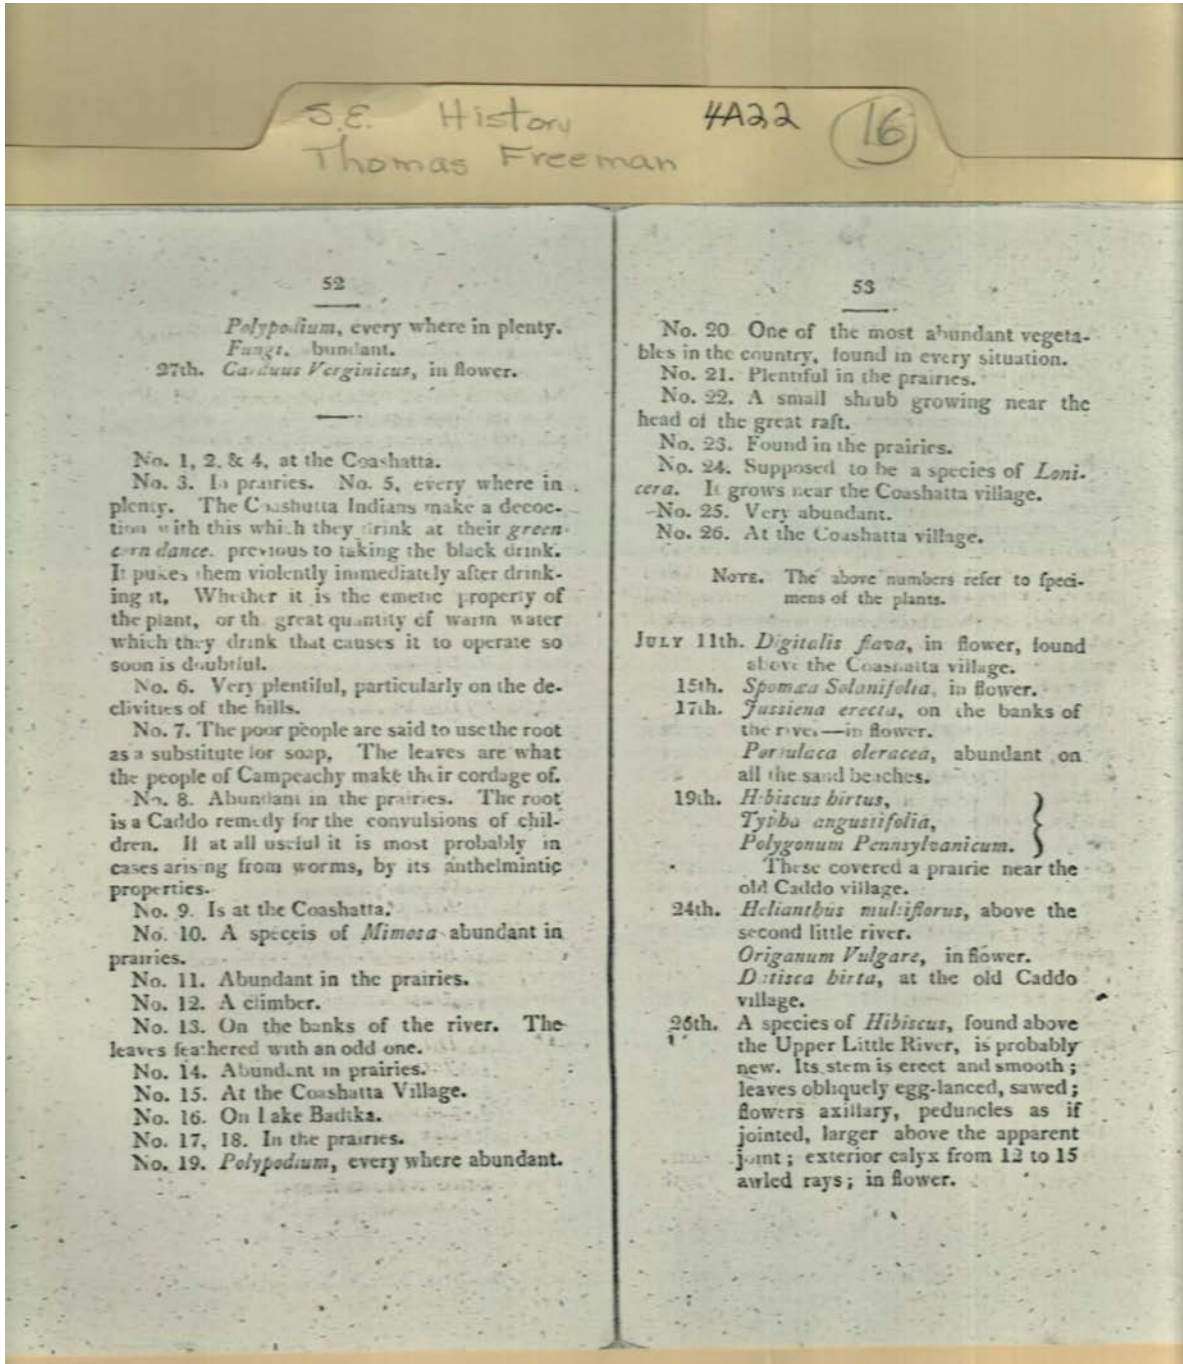 S.E. History 4A22 16
Thomas Freeman
52
Polypodium, every where in plenty.
Fungi, bundant.
27th. Carduus Verginicus, in flower.
No. 1, 2, & 4, at the Coashatta.
No. 3. In prairies. No. 5, every where in
plenty. The Coashutta Indians make a decoc-
tion with this which they drink at their green-
corn dance, previous to taking the black drink.
It pukes them violently immediately after drink-
ing it. Whether it is the emetic property of
the plant, or th great quantity of warm water
which they drink that causes it to operate so
soon is doubtful.
No. 6. Very plentiful, particularly on the de-
clivities of the hills.
No. 7. The poor people are said to use the root
as a substitute for soap. The leaves are what
the people of Campeachy make their cordage of.
No. 8. Abundant in the prairies. The root
is a Caddo remedy for the convulsions of chil-
dren. If at all useful it is most probably in
cases arising from worms, by its anthelmintic
properties.
No. 9. Is at the Coashatta.
No. 10. A speceis of Mimosa abundant in
prairies.
No. 11. Abundant in the prairies.
No. 12. A climber.
No. 13. On the banks of the river. The
leaves feathered with an odd one.
No. 14. Abundant in prairies.
No. 15. At the Coashatta Village.
No. 16. On Lake Badtka.
No. 17, 18. In the prairies.
No. 19. Polypodium, every where abundant.
53
No. 20 One of the most abundant vegeta-
bles in the country, found in every situation.
No. 21. Plentiful in the prairies.
No. 22. A small shrub growing near the
head of the great raft.
No. 23. Found in the prairies.
No. 24. Supposed to be a species of Loni-
cera. It grows near the Coashatta village.
No. 25. Very abundant.
No. 26. At the Coashatta village.
NOTE. The above numbers refer to speci-
mens of the plants.
JULY 11th. Digitalis flava, in flower, found
above the Coashatta village.
15th. Spomæa Solanifolia, in flower.
17th. Jussiena erecta, on the banks of
the river—in flower.
Portulaca oleracea, abundant on
all the sand beaches.
19th. Hibiscus birtus,
Typha angustifolia,
Polygonum Pennsylvanicum.
These covered a prairie near the
old Caddo village.
24th. Helianthus multiflorus, above the
second little river.
Origanum Vulgare, in flower.
Datisca birta, at the old Caddo
village.
26th. A species of Hibiscus, found above
the Upper Little River, is probably
new. Its stem is erect and smooth;
leaves obliquely egg-lanced, sawed;
flowers axillary, peduncles as if
jointed, larger above the apparent
joint; exterior calyx from 12 to 15
awled rays; in flower.